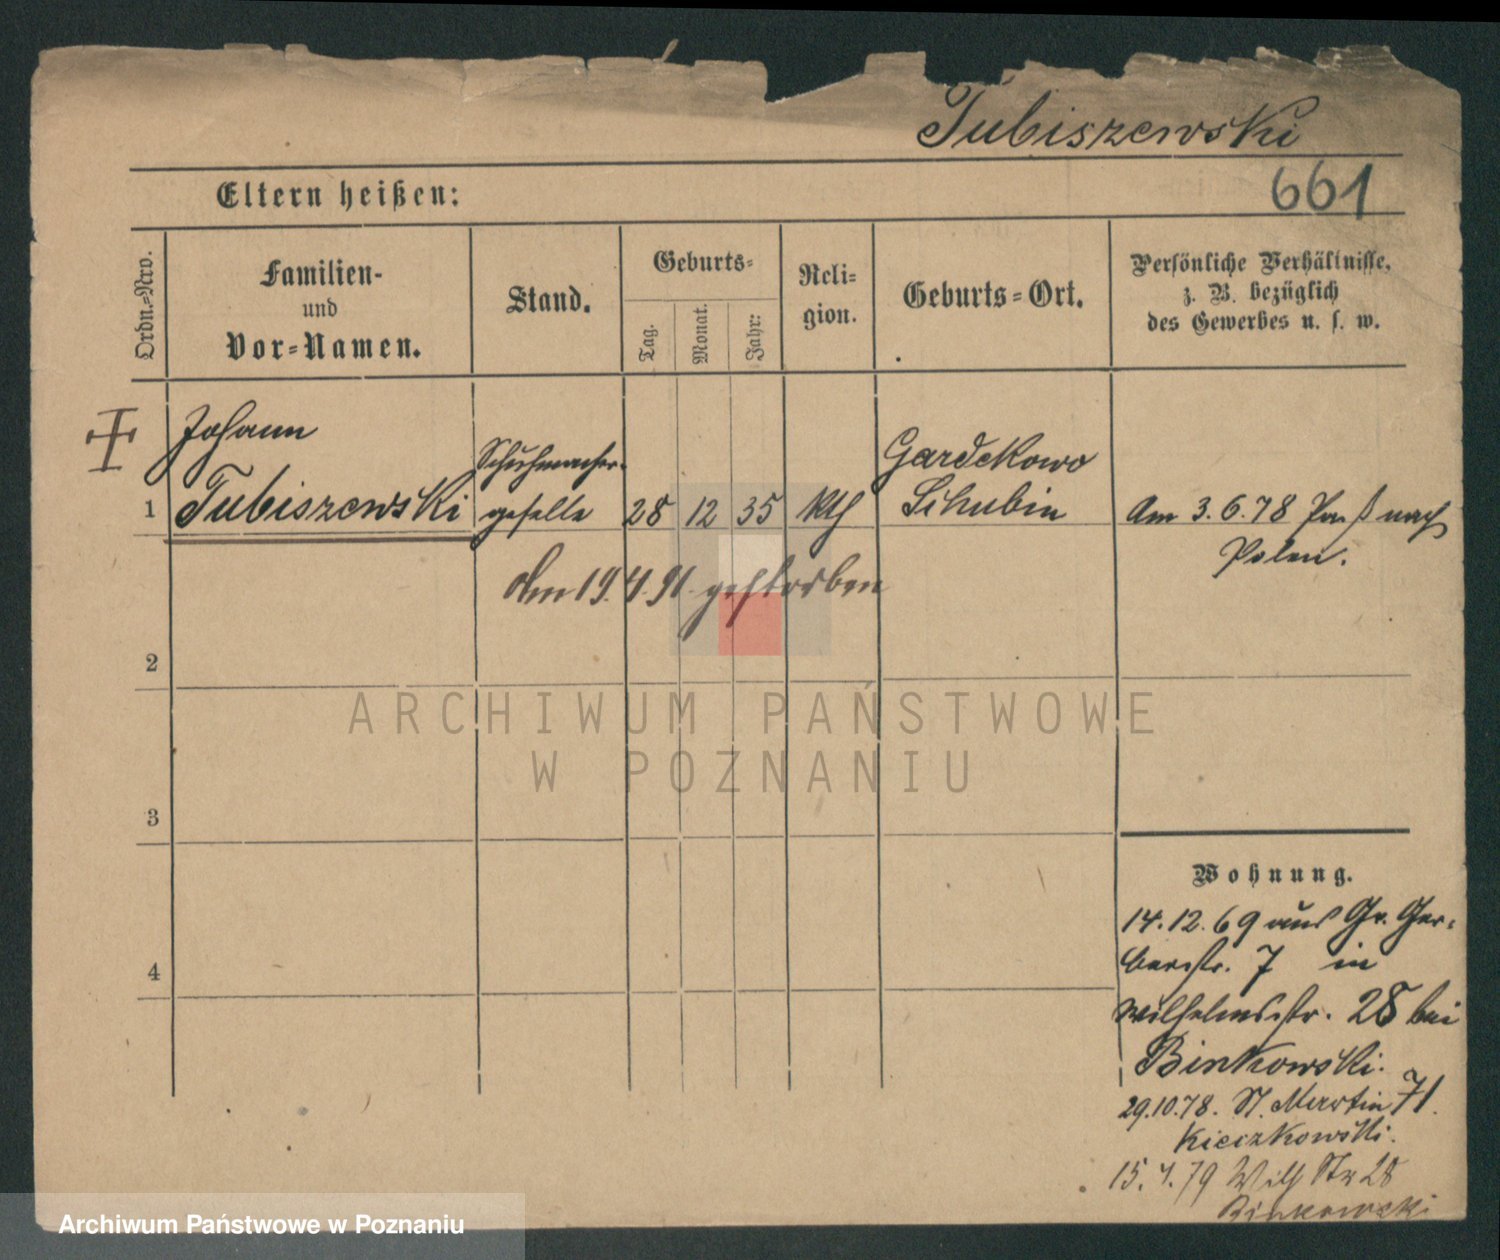 Tubiszewski
Eltern heißen:
661
Ordn.-Nro.
Familien-
und
Vor-Namen.
Stand.
Geburts-
Tag.
Monat.
Jahr:
Reli-
gion.
Geburts-Ort.
Persönliche Verhältnisse,
z. B. bezüglich
des Gewerbes u. s. w.
Johann
1 Tubiszewski
Schuhmacher-
geselle
28 12 35 kth
Gardekowo
Schubin
Am 3.6.78 Paß nach
Polen.
Am 19.4.91. gestorben
2
3
4
ARCHIWUM PAŃSTWOWE
W POZNANIU
Wohnung.
14.12.69 aus Gr. Ger-
berstr. 7 in
Wilhelmsstr. 28 bei
Binkowski.
29.10.78. St. Martin 71.
Kieczkowski.
15.4.79 Wilh Str 28
Binkowski
Archiwum Państwowe w Poznaniu